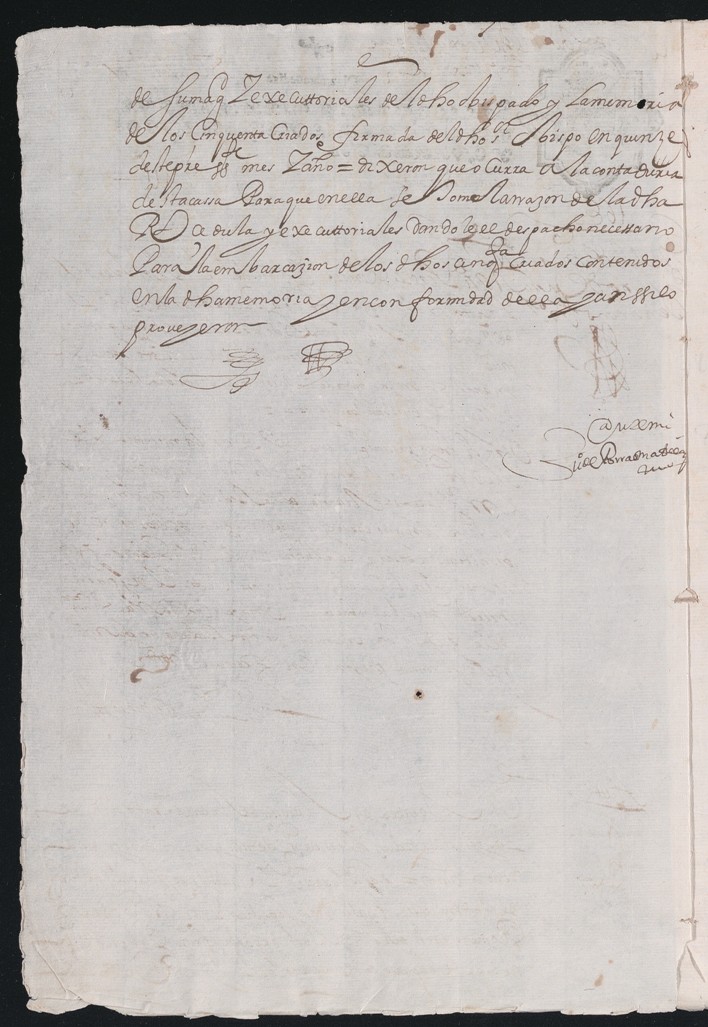 de su magd Y executtoriales del dho obispado y La memoria
de los Cinquenta Criados firmada del dho sor obispo en quinze
deste preste mes Y año = dixeron que ocurra a la contaduria
desta cassa Para que en ella se tome la rrazon de la dha
Rl cedula y executtoriales dandole el despacho necessario
Para la embarcazion de los dhos cinqta Criados contenidos
en la dha memoria y en conformidad de ella y anssi lo
proveyeron